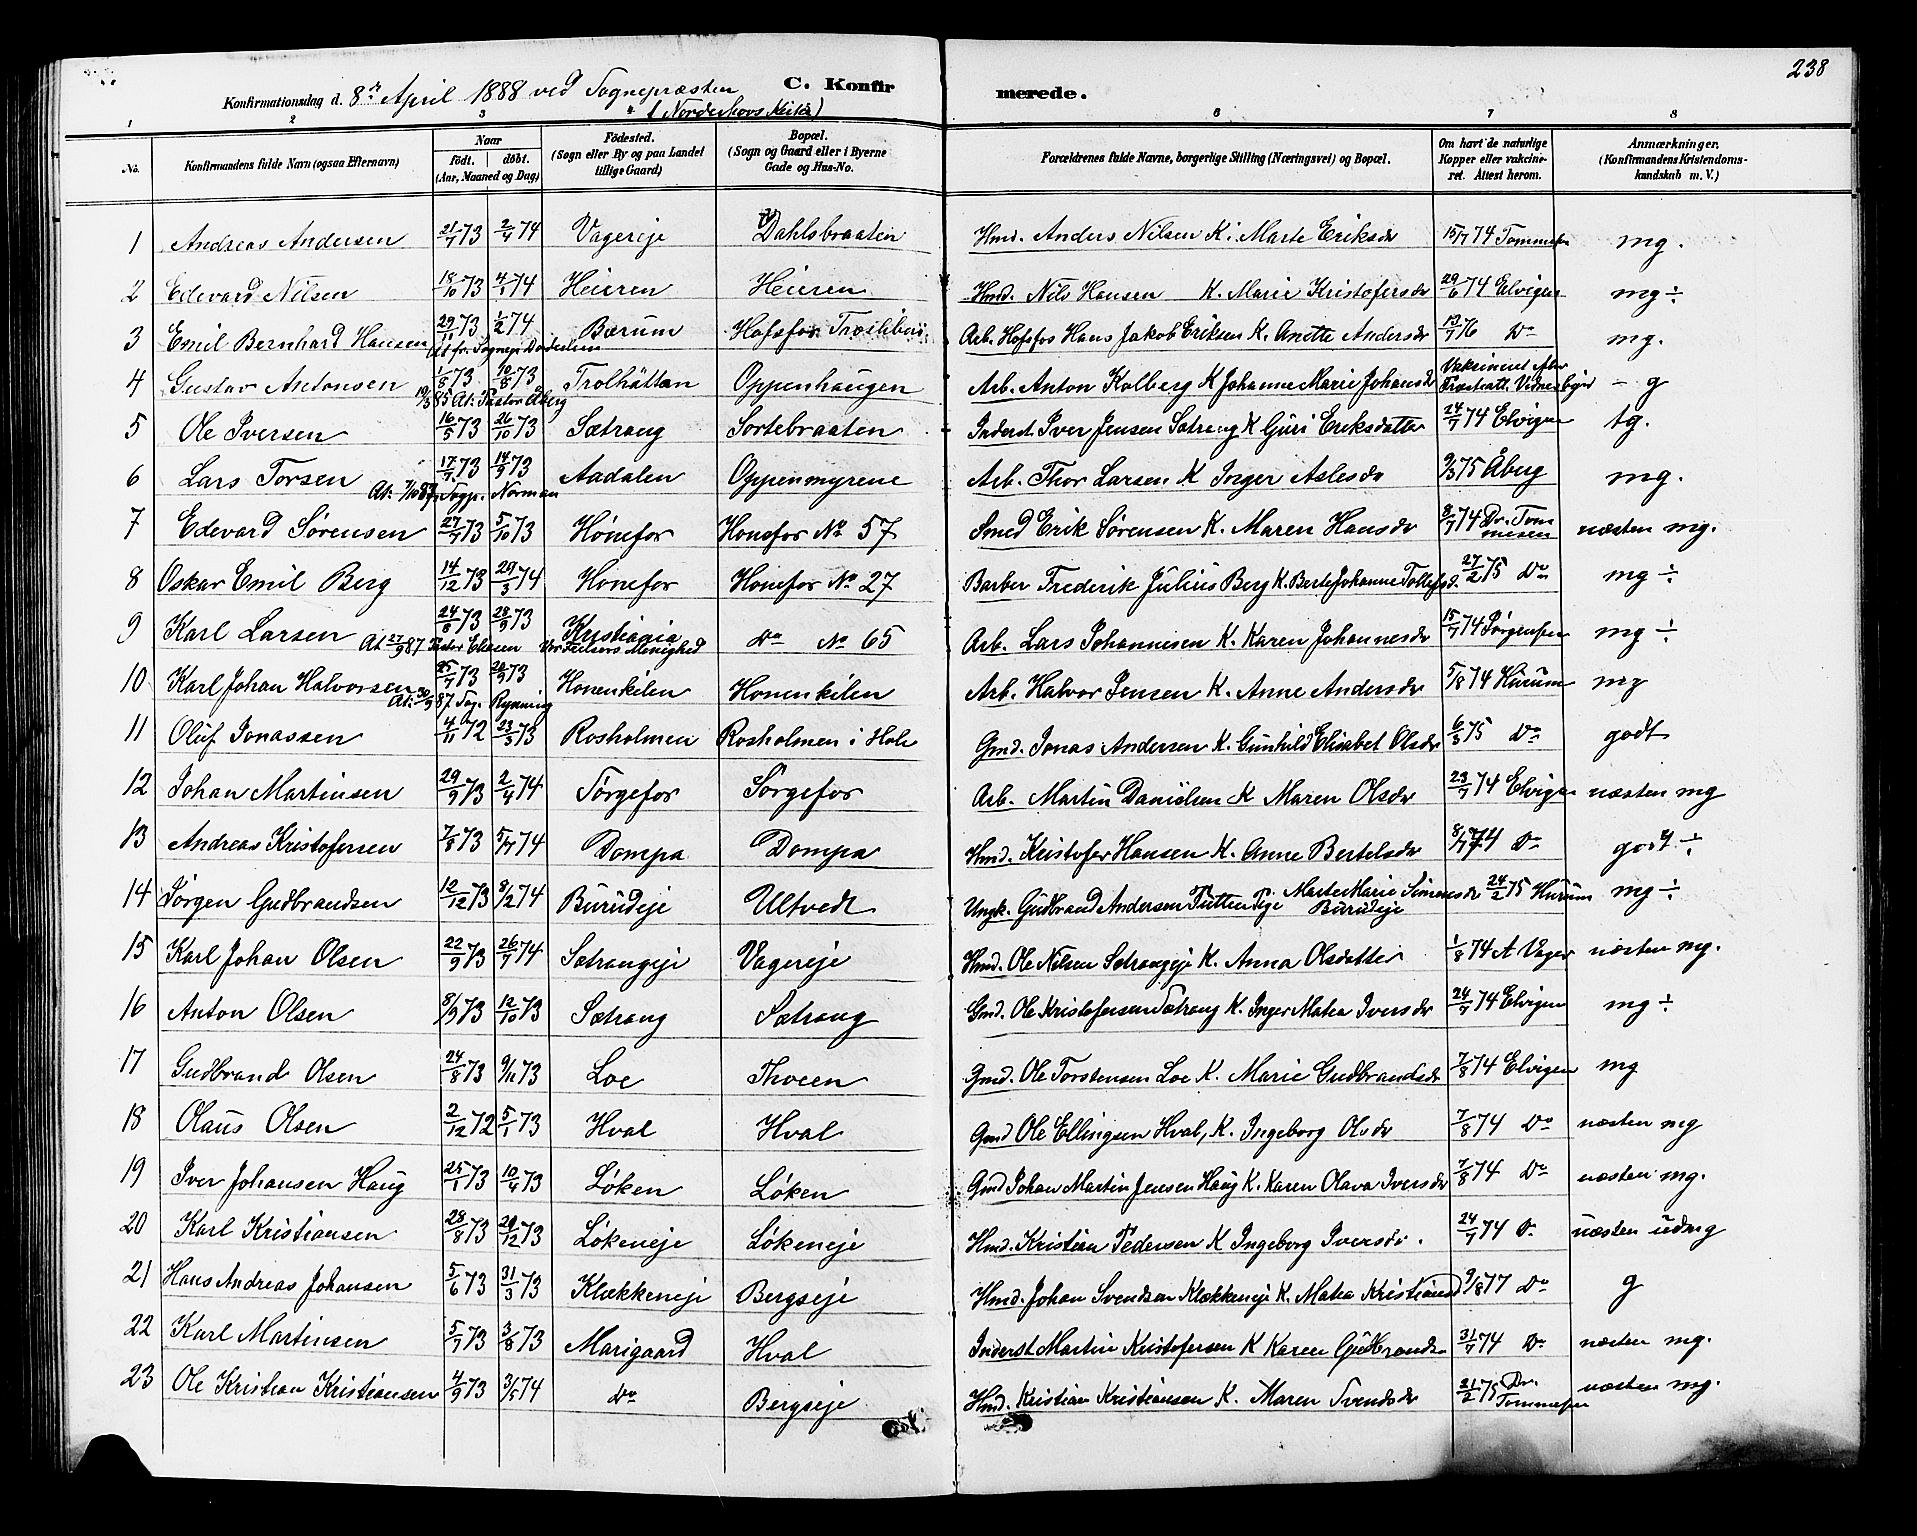 238
Konfirmationsdag d. 8de April 1888 ved Sognepræsten C. Konfirmerede.
(Norderhovs Kirke)
1 2 3 4 6 7 8
No. Konfirmandens fulde Navn (ogsaa Efternavn) Naar født. døbt. (Aar, Maaned og Dag) Fødested. (Sogn eller By og paa Landet tillige Gaard) Bopæl. (Sogn og Gaard eller i Byerne Gade og Hus-No. Forældrenes fulde Navne, borgerlige Stilling (Næringsvei) og Bopæl. Om havt de naturlige Kopper eller vakcineret. Attest herom. Anmærkninger. (Konfirmandens Kristendomskundskab m. V.)
1 Andreas Andersen 21/7 73 2/4 74 Vagereje Dahlsbraaten Hmd. Anders Nilsen K. Marte Eriksdr 15/7 74 Tommesen mg.
2 Edevard Nilsen 18/10 73 4/1 74 Heieren Heieren Hmd. Nils Hansen K. Marie Kristofersdr 29/6 74 Elvigen mg ÷
3 Emil Bernhard Hansen 29/11 73 1/2 74 Bærum Hofsfos Træsliberi Arb. Hofsfos Hans Jakob Eriksen K. Anette Andersdr 13/7 76 Do mg.
4 Gustav Antonsen 1/8 73 10/8 73 Trolhättan Oppenhaugen Arb. Anton Kolberg K Johanne Marie Johansdr - g
19/3 85 At: Pastor Åberg
5 Ole Iversen 16/5 73 26/10 73 Sætrang Sortebraaten Inderst. Iver Jensen Sætrang K Guri Eriksdatter 24/7 74 Elvigen tg.
6 Lars Torsen 17/7 73 14/9 73 Aadalen Oppenmyrene Arb. Thor Larsen K Inger Aslesdr 9/3 75 Åberg mg.
At: 7/10 87 Sogp. Norman
7 Edevard Sørensen 27/7 73 5/10 73 Hønefos Hønefos No 57 Smed Erik Sørensen K. Maren Hansdr 8/7 74 Dr. Tommesen næsten mg.
8 Oskar Emil Berg 14/12 73 29/3 74 Hønefos Hønefos No 27 Barber Frederik Julius Berg K. Berte Johanne Tollefsd. 27/2 75 Do mg ÷
9 Karl Larsen 24/8 73 28/9 73 Kristiania Do No 65 Arb. Lars Johannesen K. Karen Johannesdr 15/7 74 Jørgensen mg ÷
At 27/9 87 Pastor Eliesen Vor Frelsers Menighed
10 Karl Johan Halvorsen 25/7 73 28/9 73 Hønenkilen Hønenkilen Arb. Halvor Jensen K. Anne Andersdr 5/8 74 Hurum mg
At: 30/9 87 Sog. Rynning
11 Oluf Jonassen 4/11 72 23/3 73 Rosholmen Rosholmen i Hole Gmd. Jonas Andersen K. Gunhild Elisabet Olsdr 6/3 75 Do godt
12 Johan Martinsen 29/9 73 2/4 74 Sørgefos Sørgefos Arb. Martin Danielsen K Maren Olsdr 23/7 74 Elvigen næsten mg
13 Andreas Kristofersen 7/8 73 5/7 74 Dompa Dompa Hmd. Kristofer Hansen K. Anne Bertelsdr 8/7 74 Do godt ÷
14 Jørgen Gudbrandsen 12/12 73 8/2 74 Burudeje Ultvedt Ungk. Gudbrand Andersen Tutten Pige Marte Marie Simensdr Burudeje 24/2 75 Hurum mg ÷
15 Karl Johan Olsen 22/9 73 26/7 74 Sætrangeje Vagereje Hmd. Ole Nilsen Sætrangeje K. Anna Olsdatter 1/8 74 A Vager næsten mg.
16 Anton Olsen 8/9 73 12/10 73 Sætrang Sætrang Gmd. Ole Kristofersen Sætrang K. Inger Matea Iversdr 24/7 74 Elvigen mg ÷
17 Gudbrand Olsen 24/8 73 9/11 73 Loe Thoen Gmd. Ole Torstensen Loe K. Marie Gudbrandsdr 7/8 74 Elvigen mg
18 Olaus Olsen 2/12 72 5/1 73 Hval Hval Gmd Ole Ellingsen Hval, K. Ingeborg Olsdr 7/8 74 Do næsten mg
19 Iver Johansen Haug 25/1 73 10/4 73 Løken Løken Gmd Johan Martin Jensen Haug K. Karen Olava Iversdr 7/8 74 Do næsten mg.
20 Karl Kristiansen 28/8 73 29/12 73 Løkeneje Løkeneje Hmd. Kristian Pedersen K Ingeborg Iversdr. 24/7 74 Do næsten udmg
21 Hans Andreas Johansen 5/6 73 31/3 73 Klækkeneje Bergseje Hmd. Johan Svendsen Klækkeneje K. Matea Kristiansd 9/8 77 Do g
22 Karl Martinsen 5/7 73 3/8 73 Marigaard Hval Inderst Martin Kristofersen K Karen Gudbrandsd. 31/7 74 Do næsten mg.
23 Ole Kristian Kristiansen 4/9 73 3/5 74 Do Bergseje Hmd. Kristian Kristiansen K. Maren Svendsdr 21/2 75 Dr. Tommesen næsten mg.